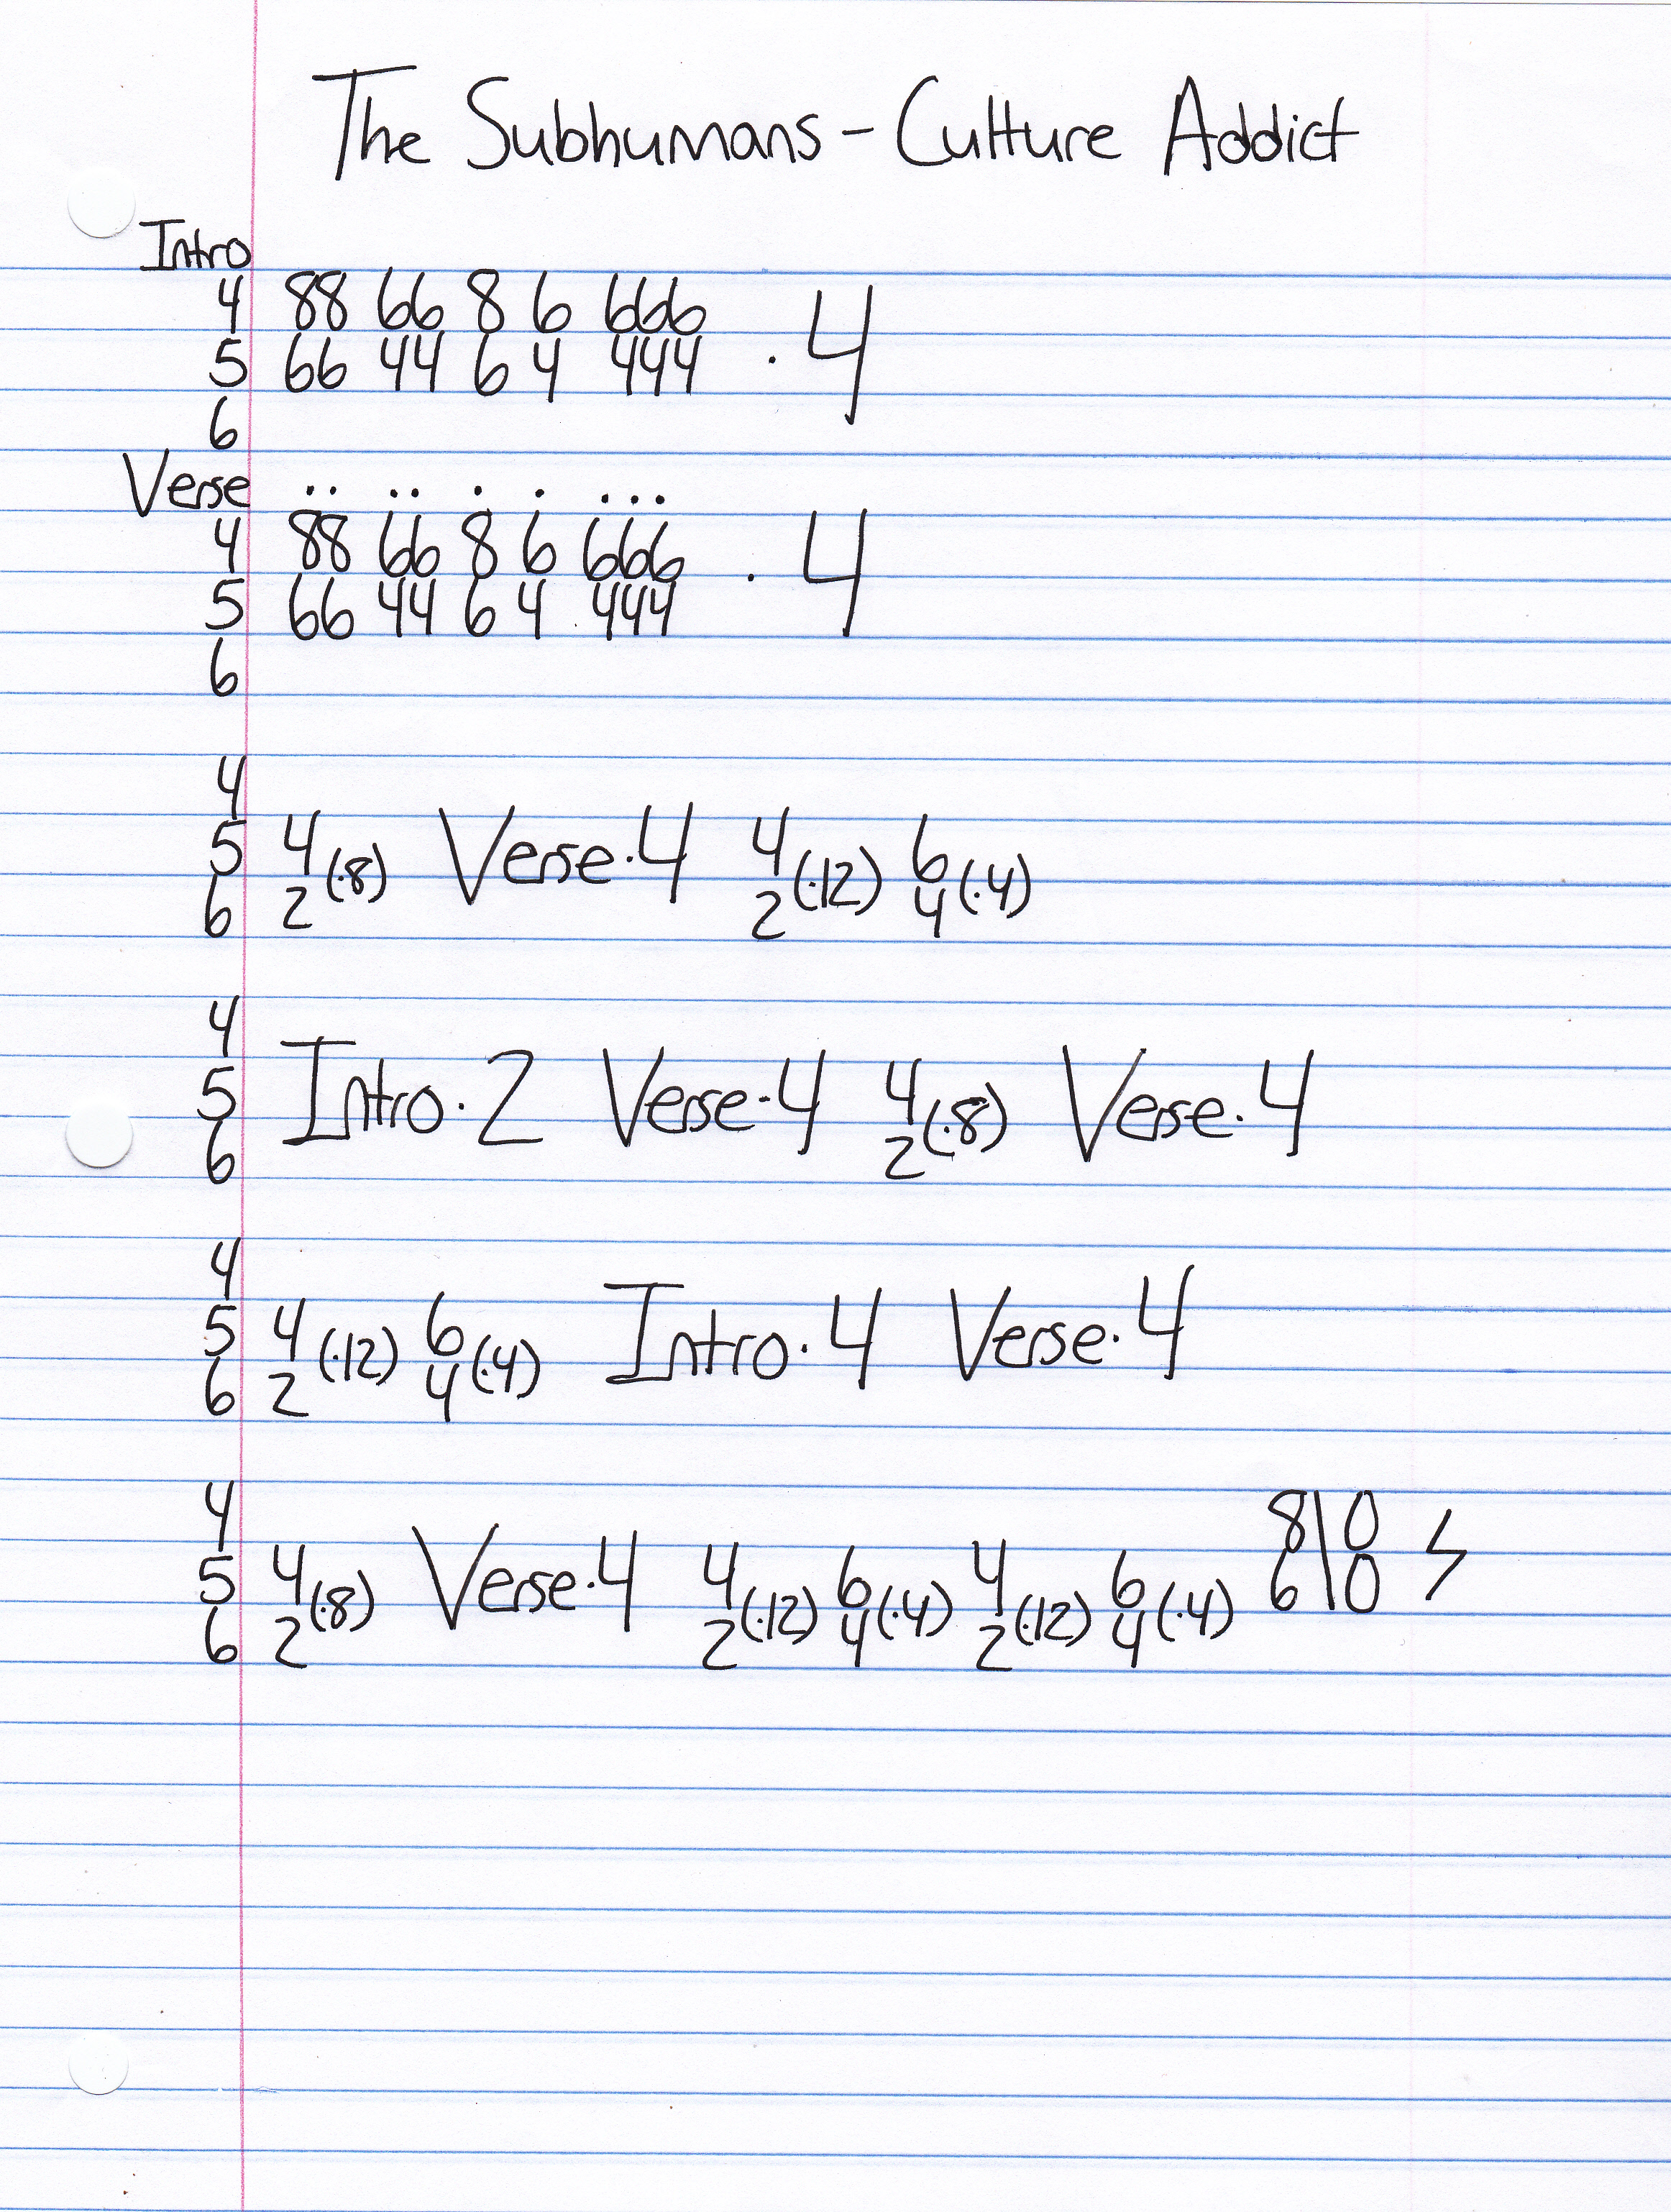 The Subhumans - Culture Addict
Intro
4 88 66 8 6 666
5 66 44 6 4 444 · 4
6
Verse .. .. . . ...
4 88 66 8 6 666
5 66 44 6 4 444 · 4
6
4
5 4 (·8) Verse·4 4 (·12) 6 (·4)
6 2 2 4
4
5 Intro·2 Verse·4 4 (·8) Verse·4
6 2
4
5 4 (·12) 6 (·4) Intro·4 Verse·4
6 2 4
4 8\0
5 4 (·8) Verse·4 4 (·12) 6 (·4) 4 (·12) 6 (·4) 6\0
6 2 2 4 2 4